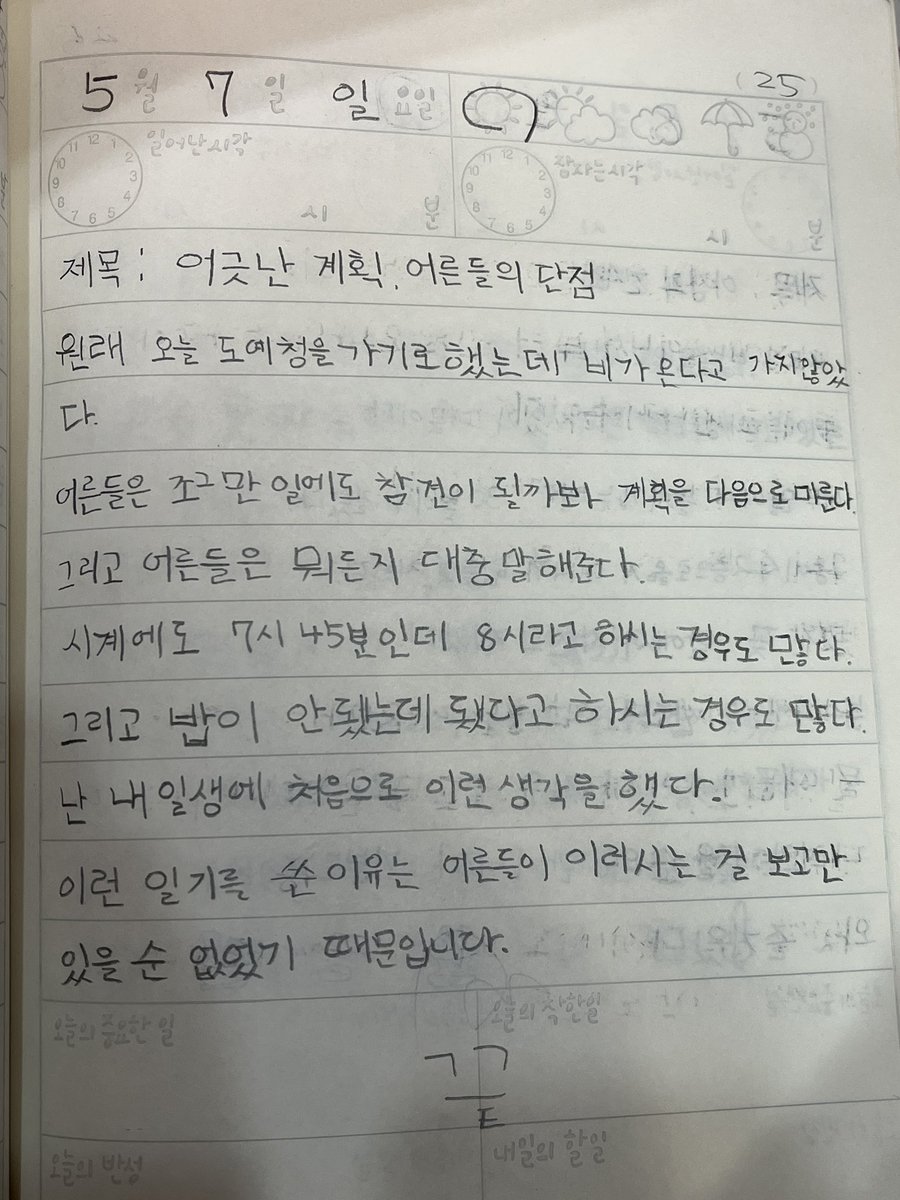 (25)
5월 7일 일요일
일어난시각 시 분
잠자는시각 시 분
제목: 어긋난 계획. 어른들의 단점
원래 오늘 도예청을 가기로했는데 비가 온다고 가지않았
다.
어른들은 조그만 일에도 참견이 될까봐 계획을 다음으로 미룬다.
그리고 어른들은 뭐든지 대충 말해준다.
시계에도 7시 45분인데 8시라고 하시는 경우도 많다.
그리고 밥이 안됐는데 됐다고 하시는 경우도 많다.
난 내 일생에 처음으로 이런 생각을 했다.
이런 일기를 쓴 이유는 어른들이 이러시는 걸 보고만
있을 순 없었기 때문입니다.
오늘의 중요한 일
오늘의 착한일
끝
오늘의 반성
내일의 할일